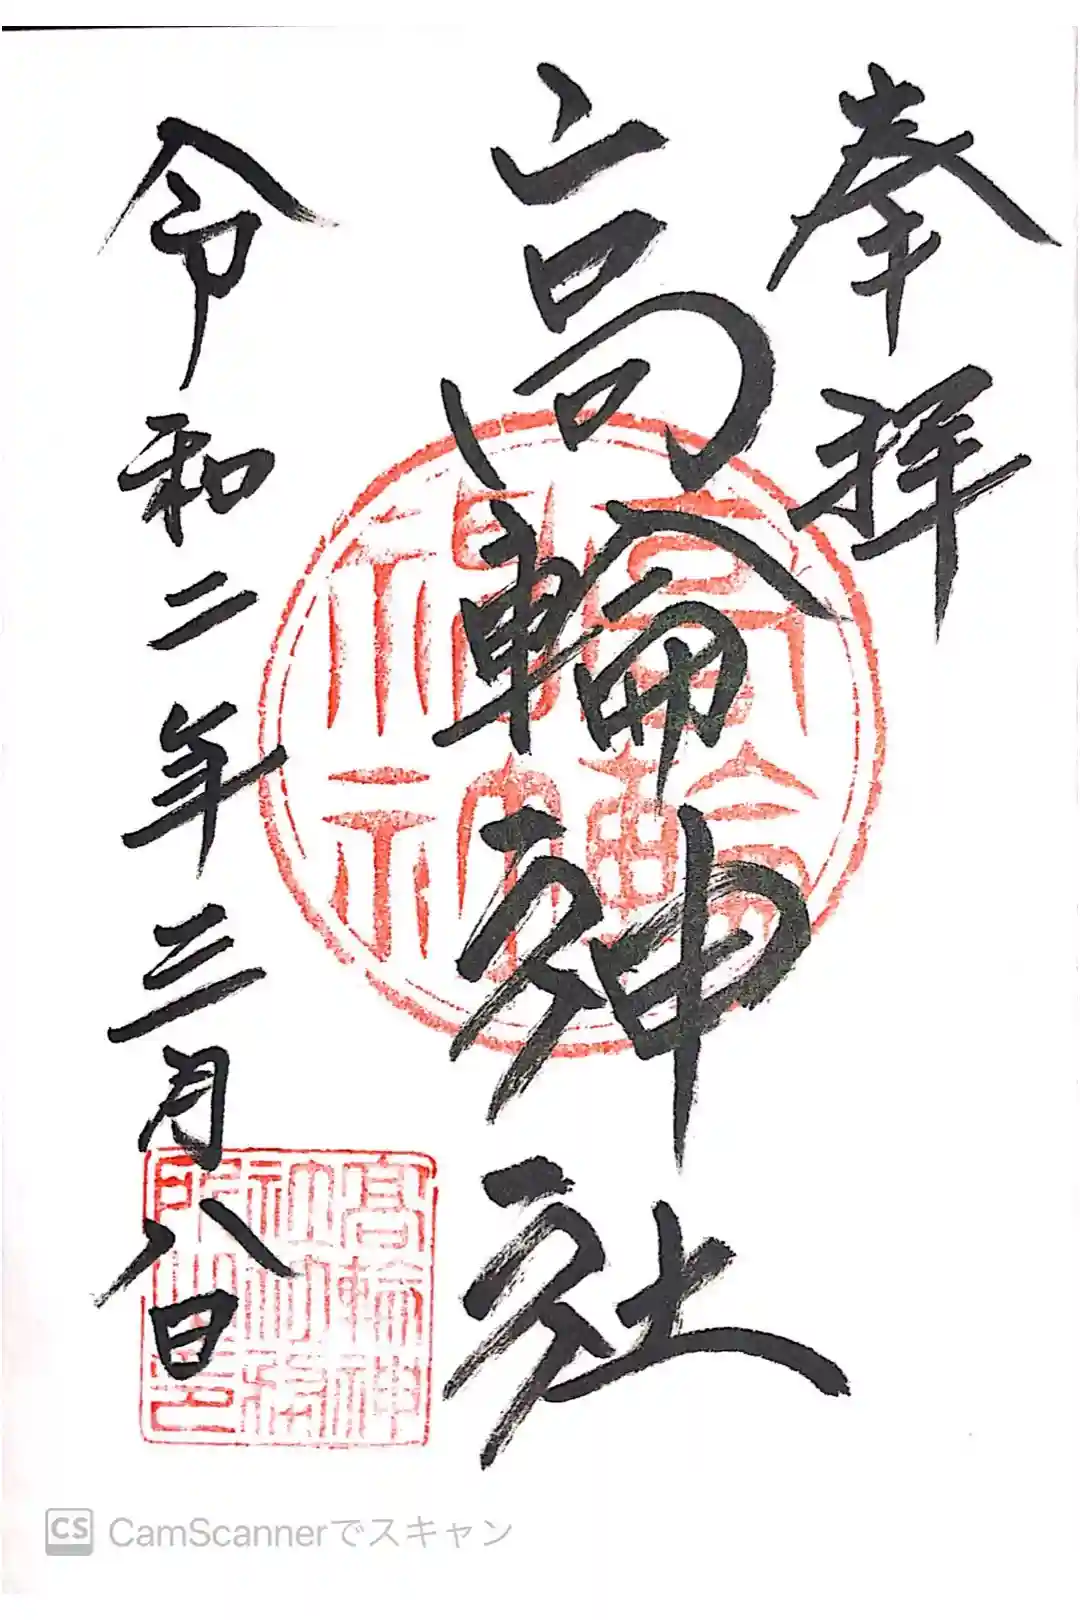 奉拝
高輪神社
令和二年三月八日
高輪神
社社務
所之印
CS CamScannerでスキャン